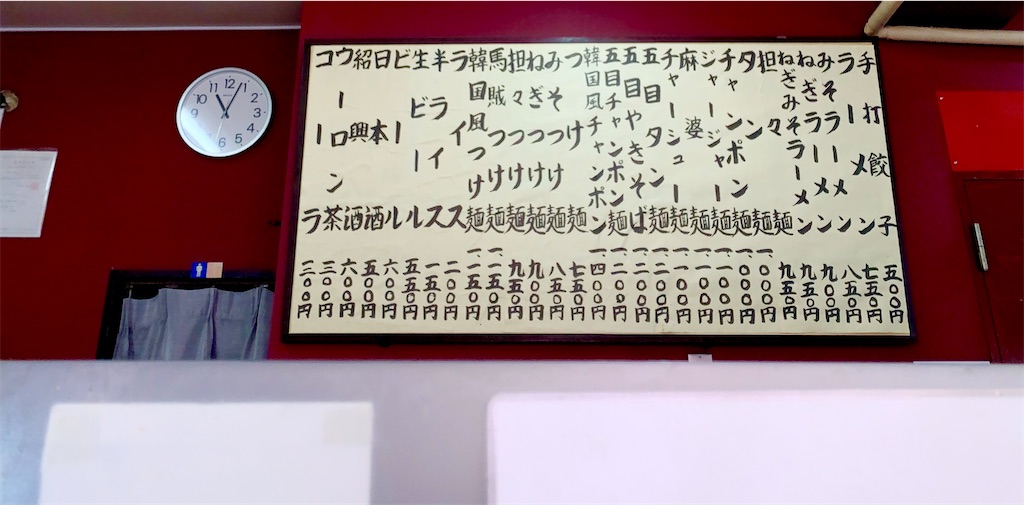 手打餃子 五〇〇円
ラーメン 七五〇円
みそラーメン 八五〇円
ねぎラーメン 九〇〇円
ねぎみそラーメン 九五〇円
担々麺 九五〇円
タン麺 一、〇〇〇円
チャンポン麺 一、〇〇〇円
ジャージャー麺 一、一〇〇円
麻婆麺 一、一〇〇円
チャーシュー麺 一、一〇〇円
五目タン麺 一、二〇〇円
五目やきそば 一、二〇〇円
五目チャンポン麺 一、二〇〇円
韓国風チャンポン 一、四〇〇円
つけ麺 七五〇円
みそつけ麺 八五〇円
ねぎつけ麺 九〇〇円
担々つけ麺 九五〇円
馬賊つけ麺 一、一五〇円
韓国風つけ麺 一、一五〇円
ライス 二〇〇円
半ライス 一五〇円
生ビール 五五〇円
ビール 六〇〇円
日本酒 五〇〇円
紹興酒 六〇〇円
ウーロン茶 三〇〇円
コーラ 三〇〇円
12 1 2 3 4 5 6 7 8 9 10 11